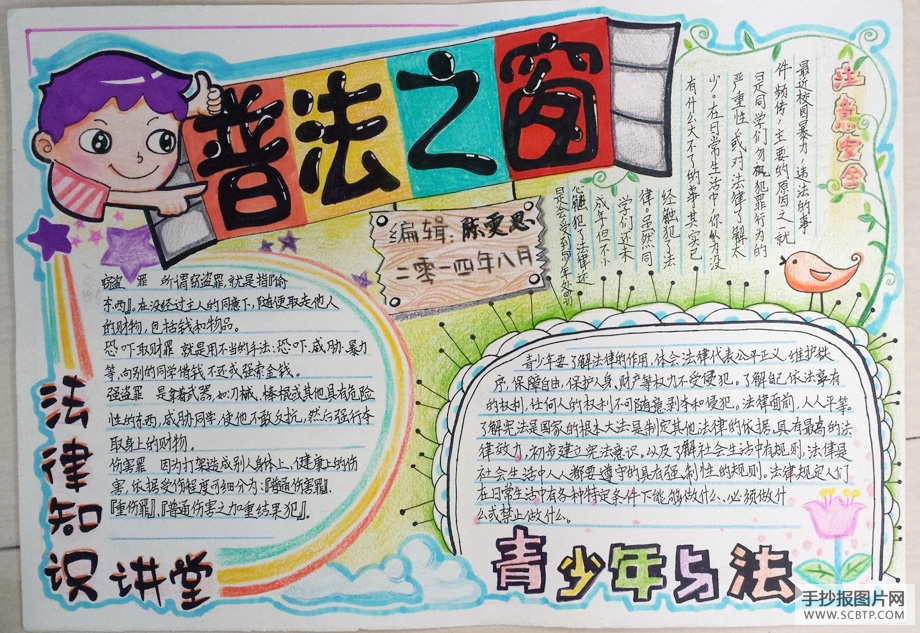 普法之窗
编辑:陈雯思
二零一四年八月
注意安全
最近校园暴力,违法的事
件频传,主要的原因之一就
是同学们忽视犯罪行为的
严重性或对法律了解太
少。在日常生活中,你认为没
有什么大不了的事,其实已
经触犯了法
律。虽然同
学们还未
成年但不小
心触犯了法律还
是会受到
窃盗 罪 所谓窃盗罪,就是指『偷
东西』。在没经过主人的同意下,随便取走他人
的财物,包括钱和物品。
恐吓取财罪 就是用不当的手法:恐吓.威胁.暴力
等,向别的同学借钱不还或强索金钱。
强盗罪 是拿着武器,如刀械、棒棍或其他具有危险
性的东西,威胁同学,使他不敢反抗,然后强行拿
取身上的财物。
伤害罪 因为打架造成别人身体上、健康上的伤
害,依据受伤程度可细分为:『普通伤害罪』.
『重伤罪』.『普通伤害之加重结果犯』.
法律知识讲堂
青少年要了解法律的作用,体会法律代表公平正义,维护秩
序,保障自由,保护人身、财产等权力不受侵犯。了解自己依法享有
的权利,任何人的权利不可随意剥夺和侵犯。法律面前,人人平等。
了解宪法是国家的根本大法是制定其他法律的依据,具有最高的法
律效力,初步建立宪法意识,以及了解社会生活中有规则,法律是
社会生活中人人都要遵守的具有强制性的规则。法律规定人们
在日常生活中有各种特定条件下能够做什么、必须做什
么或禁止做什么。
青少年与法
手抄报图片网
WWW.SCBTP.COM